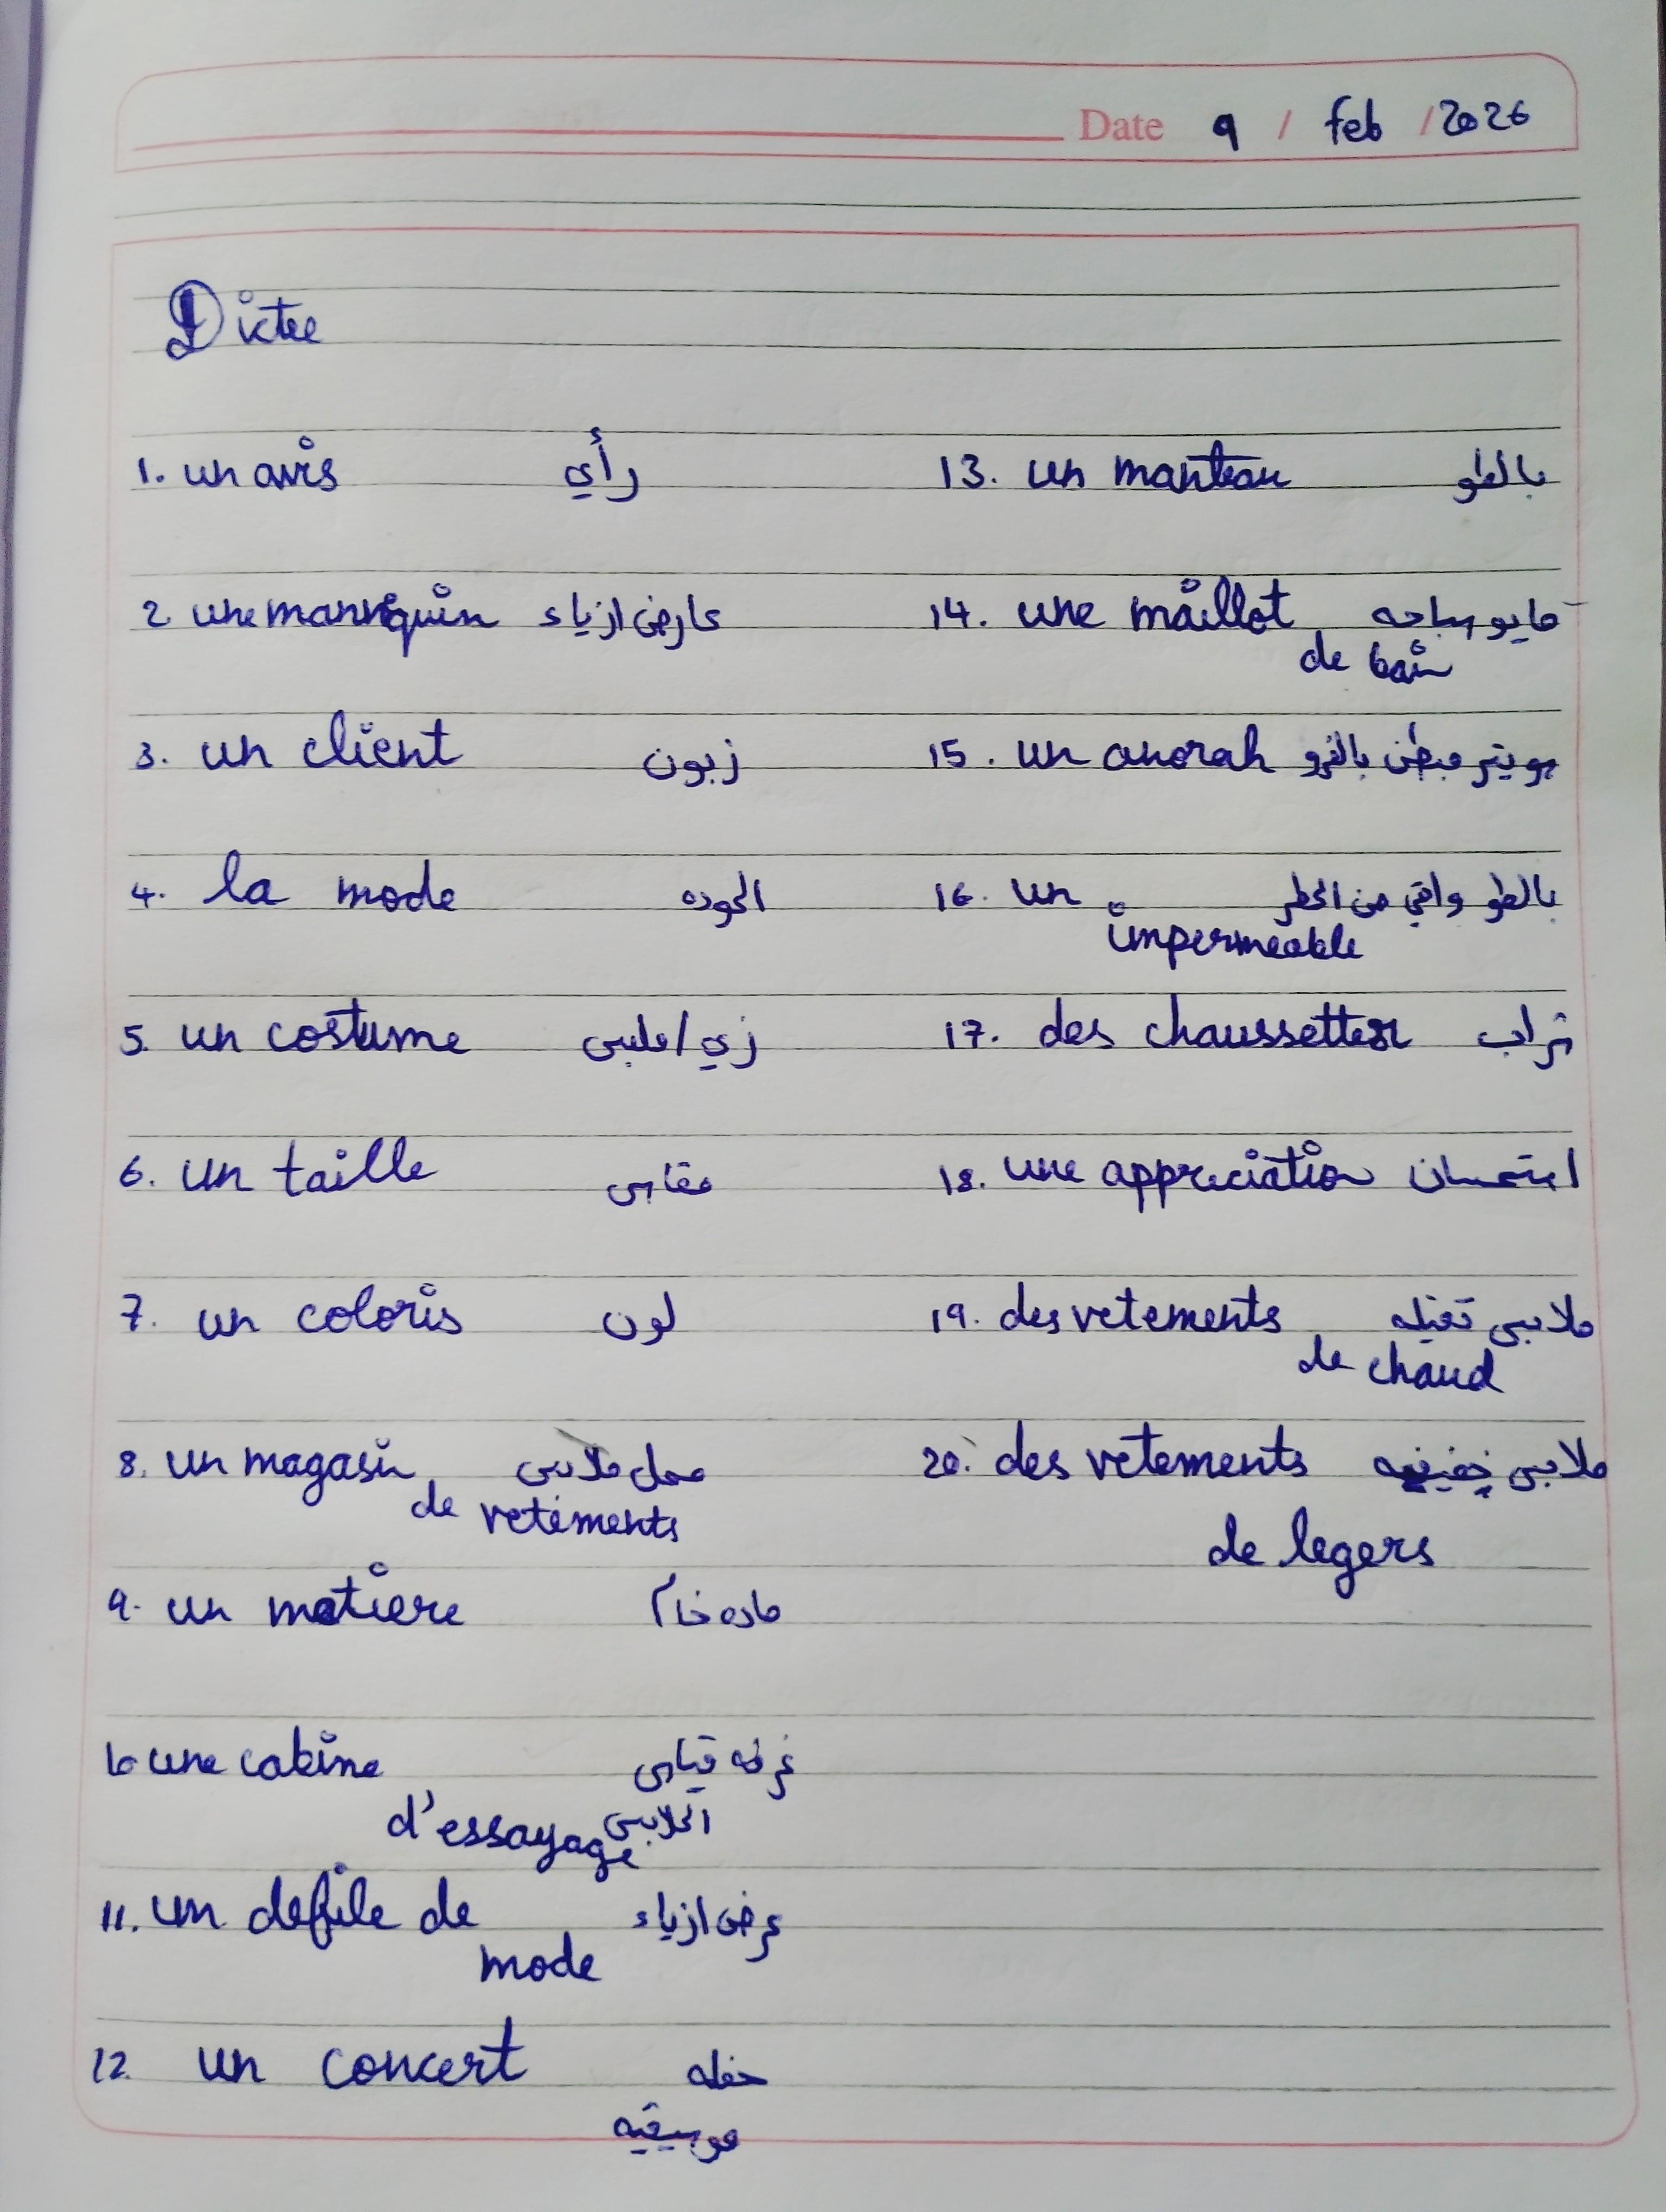 Date 9 / feb / 2026
Dictee
1. un avis رأي
2 une mannequin عارض ازياء
3. un client زبون
4. la mode الموده
5. un costume زي / ملبس
6. un taille مقاس
7. un coloris لون
8. un magasin محل ملابس
de vetements
9. un matiere ماده خام
10 une cabine غرفه قياس
d'essayage الملابس
11. un defile de عرض ازياء
mode
12. un concert حفله
موسيقيه
13. un manteau بالطو
14. une maillot مايو سباحه
de bain
15. un anorak جويتر مبطن بالفرو
16. un بالطو واقي من المطر
impermeable
17. des chaussettes شراب
18. une appreciation استحسان
19. des vetements ملابس تقيله
de chaud
20. des vetements ملابس خفيفه
de legers